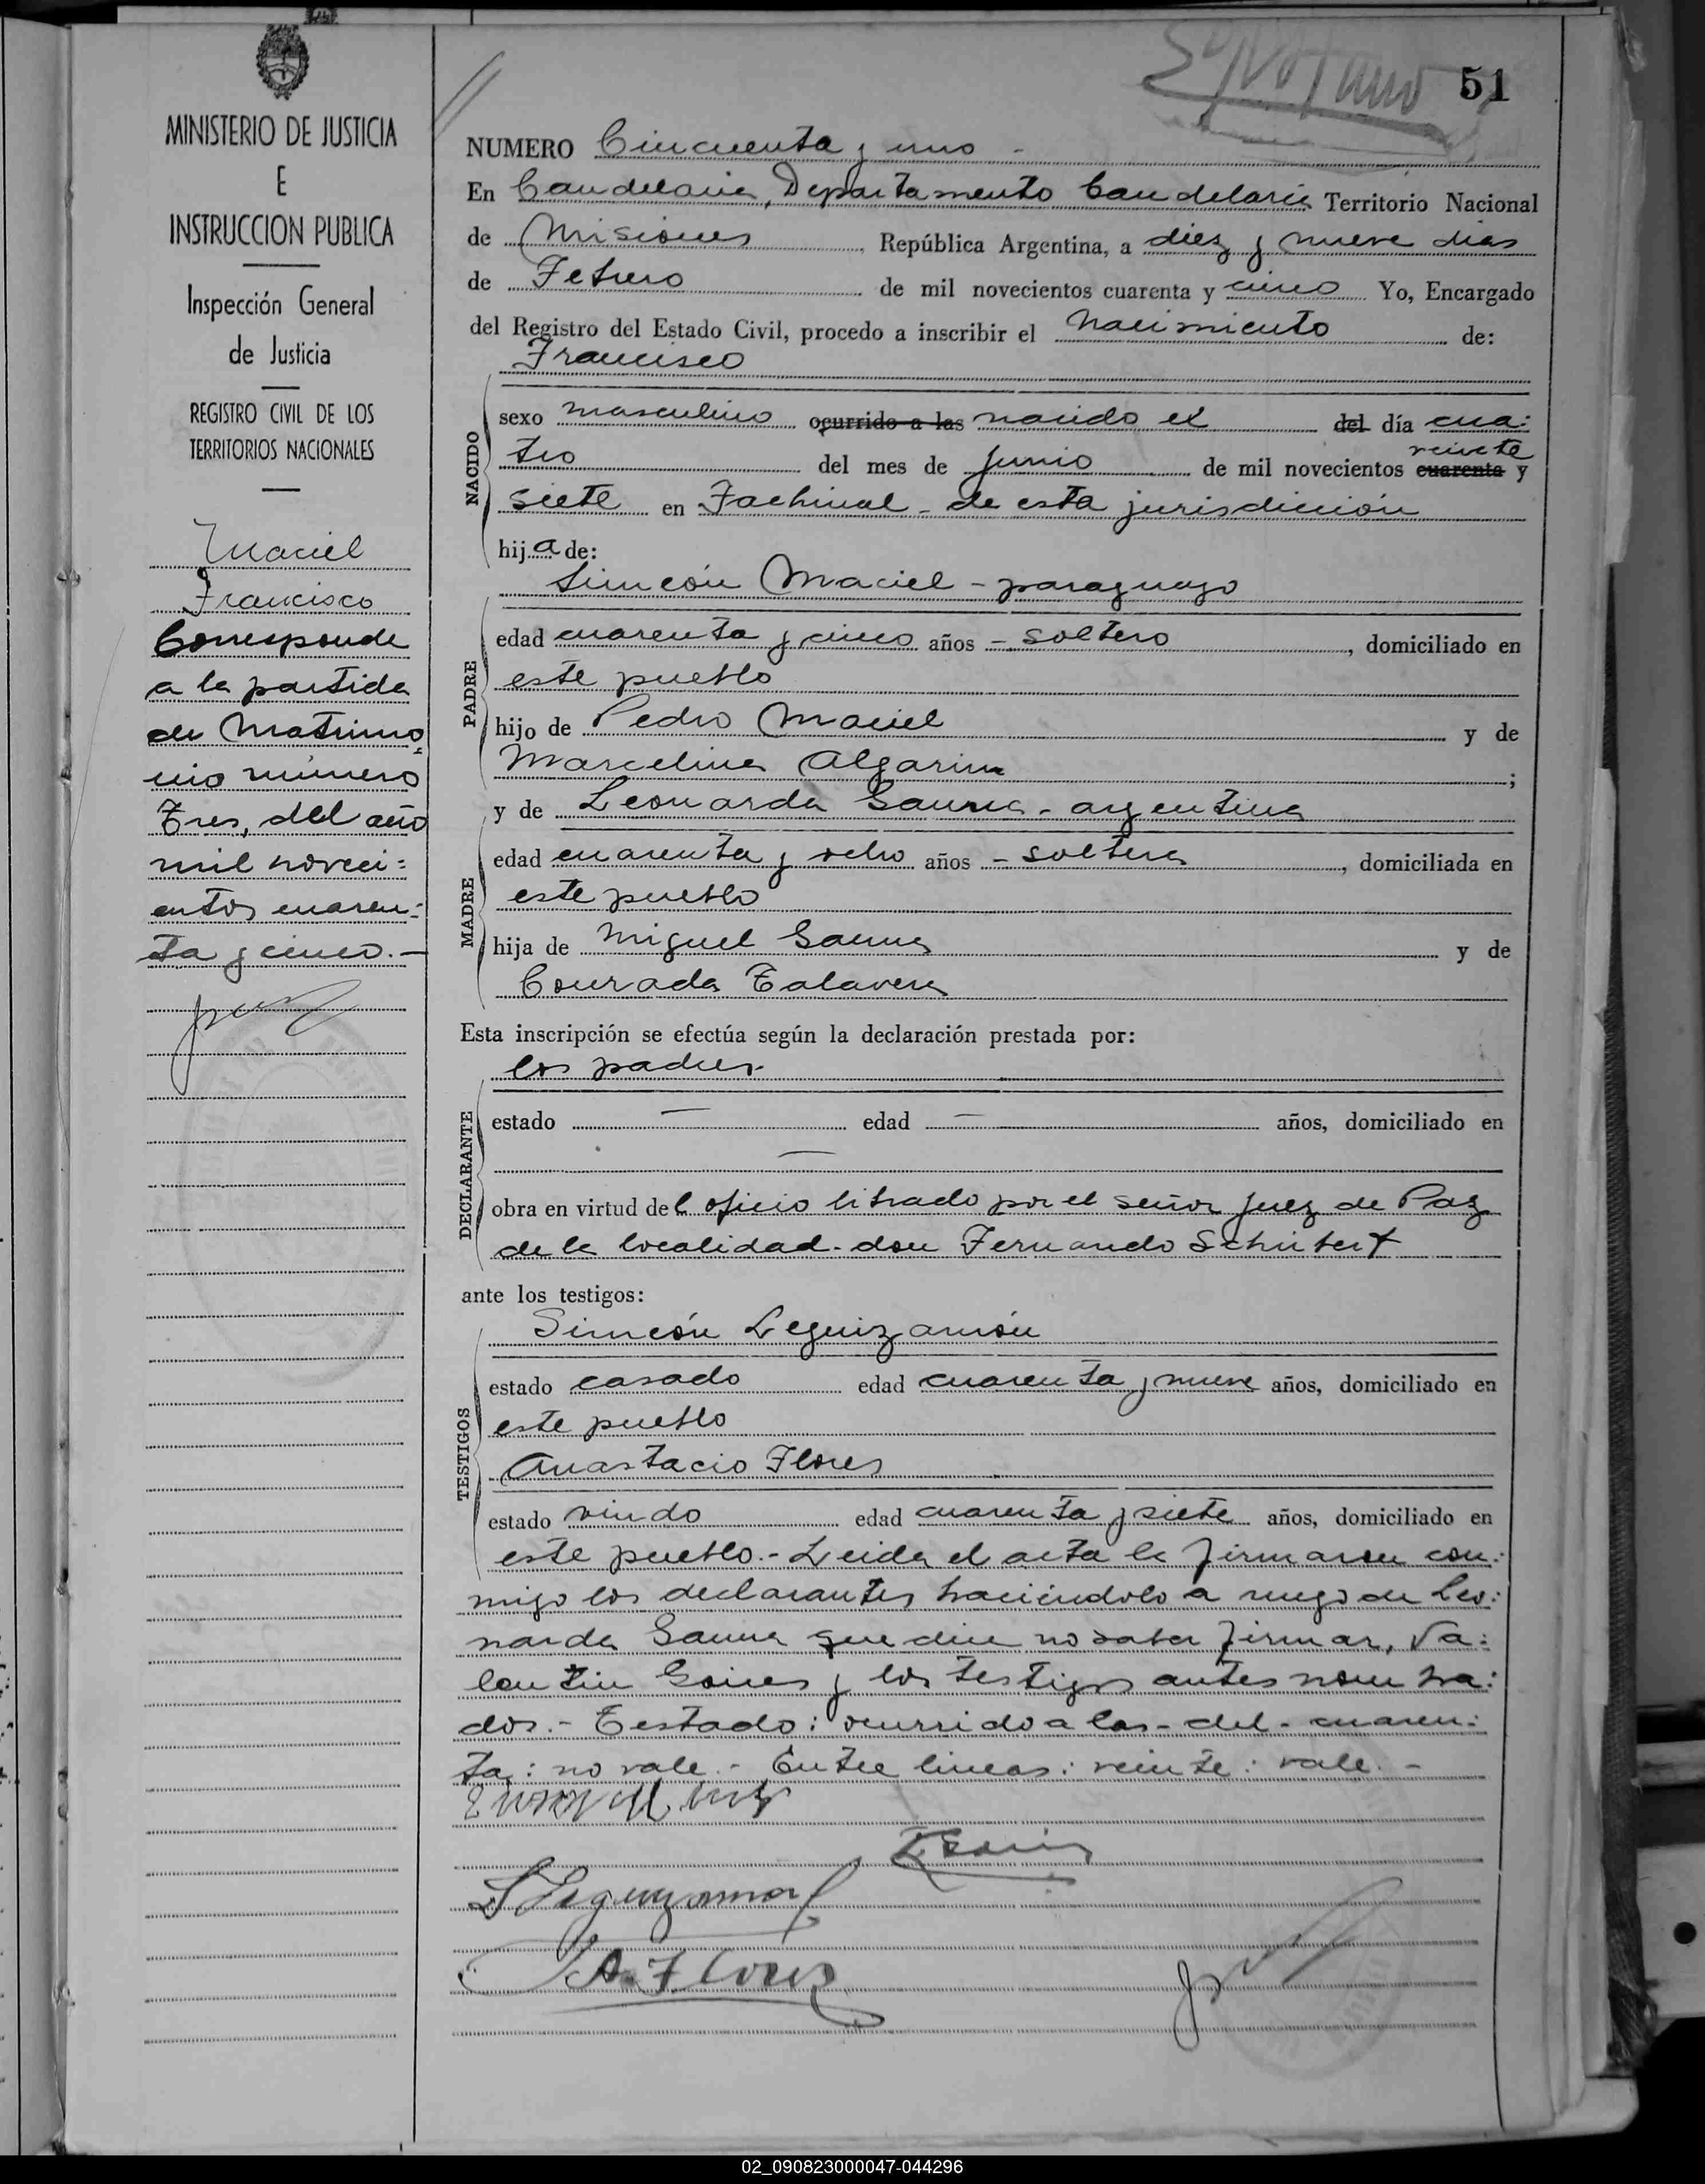 51
MINISTERIO DE JUSTICIA
E
INSTRUCCION PUBLICA
Inspección General
de Justicia
REGISTRO CIVIL DE LOS
TERRITORIOS NACIONALES
Maciel
Francisco
Corresponde
a la partida
de Matrimo
nio número
Tres, del año
mil noveci=
entos cuaren=
ta y cinco.-
NUMERO Cincuenta y uno -
En Candelaria, Departamento Candelaria Territorio Nacional
de Misiones República Argentina, a diez y nueve dias
de Febrero de mil novecientos cuarenta y cinco Yo, Encargado
del Registro del Estado Civil, procedo a inscribir el nacimiento de:
Francisco
NACIDO
sexo masculino ocurrido a las nacido el del día cua=
tro del mes de junio de mil novecientos cuarenta veinte y
siete en Fachinal - de esta jurisdicción
hija de:
PADRE
Simeón Maciel - paraguayo
edad cuarenta y cinco años - soltero, domiciliado en
este pueblo
hijo de Pedro Maciel y de
Marcelina Algarin;
MADRE
y de Leonarda Gauna - argentina
edad cuarenta y ocho años - soltera, domiciliada en
este pueblo
hija de Miguel Gauna y de
Conrada Talavera
Esta inscripción se efectúa según la declaración prestada por:
los padres.
DECLARANTE
estado — edad — años, domiciliado en
—
obra en virtud del oficio librado por el señor Juez de Paz
de la localidad - don Fernando Schubert
ante los testigos:
TESTIGOS
Simeón Leguizamón
estado casado edad cuarenta y nueve años, domiciliado en
este pueblo
Anastacio Flores
estado viudo edad cuarenta y siete años, domiciliado en
este pueblo.- Leida el acta la firmaron con=
migo los declarantes haciéndolo a ruego de Leo=
narda Gauna que dice no saber firmar, Va=
lentin Goires y los testigos antes nombra=
dos.- Testado: ocurrido a las - del - cuaren=
ta: no vale.- Entre lineas: veinte: vale.-
S Leguizamon
A. Flores
02_090823000047-044296